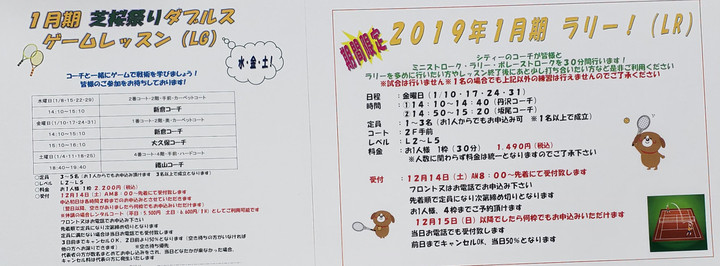 1月期 芝桜祭りダブルス
ゲームレッスン(LG)
水・金・土!
コーチと一緒にゲームで戦術を学びましょう!
皆様のご参加をお待ちしております!
水曜日(1/8・15・22・29) 2番コート・2階・手前・カーペットコート
14:10~15:10 新倉コーチ
金曜日(1/10・17・24・31)
14:10~15:10 新倉コーチ
15:10~16:10 大久保コーチ
土曜日(1/4・11・18・25)
18:40~19:40
定員 3~5名(お1人からでもお申込み頂けます 3名以上で成立となります)
レベル L2~L5
料金 お1人様 1枠 2,200円(税込)
受付 12月14日(土)AM8:00~先着にて受付致します
フロント又はお電話でお申込み下さい
先着順で定員になり次第締め切りとなります
定員に満たない場合は当日お電話でも受付致します
期間限定
2019年1月期 ラリー!(LR)
シティーのコーチが皆様と
ミニストローク・ラリー・ボレーストロークを30分間行います!
ラリーを多めに行いたい方やレッスン終了後にあと少し打ち合いたい方など是非ご利用ください
※試合は行いません※1名の場合でも上記以外の練習は行えませんのでご了承ください
日程 :金曜日(1/10・17・24・31)
時間 :①14:10~14:40(丹沢コーチ)
②14:50~15:20(坂尾コーチ)
定員 :1~3名(お1人からでもお申込み可 ※1名以上で成立)
コート :2F手前
レベル :L2~L5
料金 :お1人様 1枠(30分) 1,490円(税込)
※人数に関わらず料金は統一となりますのでご了承下さい
受付 :12月14日(土)AM8:00~先着にて受付致します
フロント又はお電話でお申込み下さい
先着順で定員になり次第締め切りとなります
お1人様、4枠までご予約頂けます
12月15日(日)以降でしたら何枠でもお申込みいただけます
当日お電話でも受付致します
前日までキャンセルOK、当日50%となります